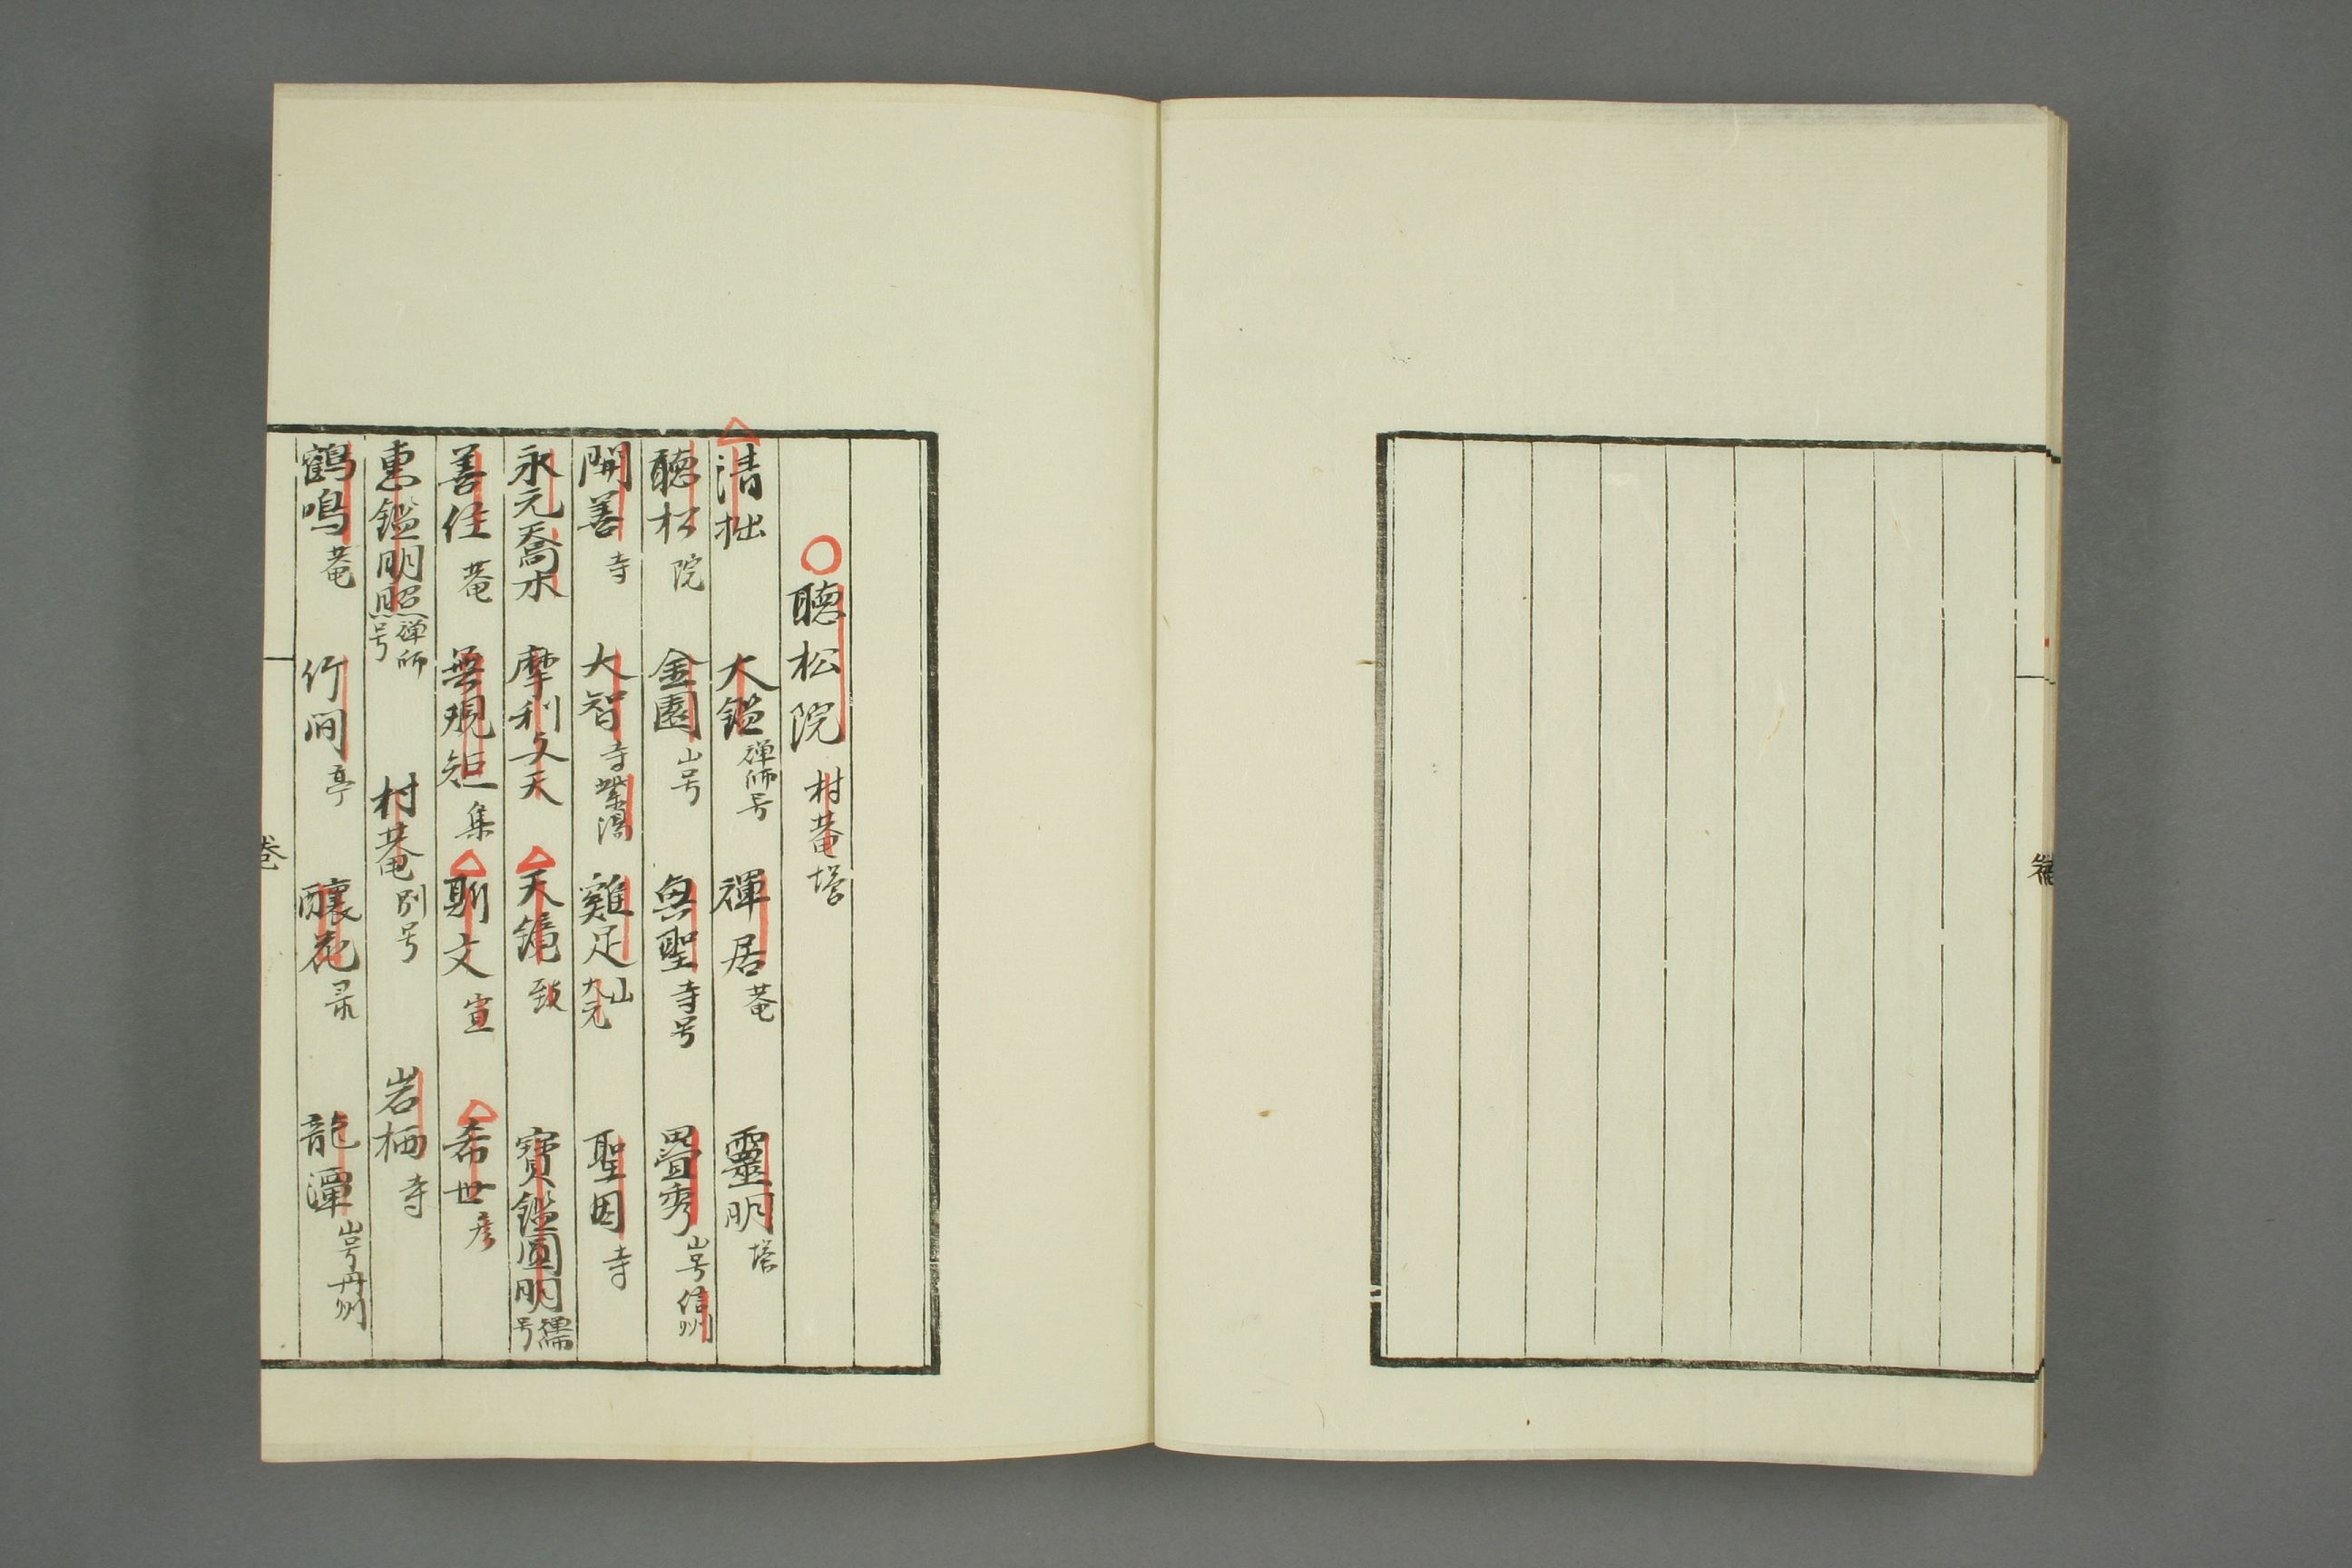 聴松院 村菴塔
清拙 大鑑禅師号 禅居菴 靈明塔
聴松院 金園山号 無聖寺号 疊秀山号信州
開善寺 大智寺 雞足山 聖因寺
永元喬木 摩利支天 天鏡致 寶鑑圓明禅師号
善住菴 無規矩集 斯文宣 希世彦
恵鑑明照禅師号 村菴別号 岩栖寺
鶴鳴菴 竹間亭 釀花 龍潭山号丹州
巻